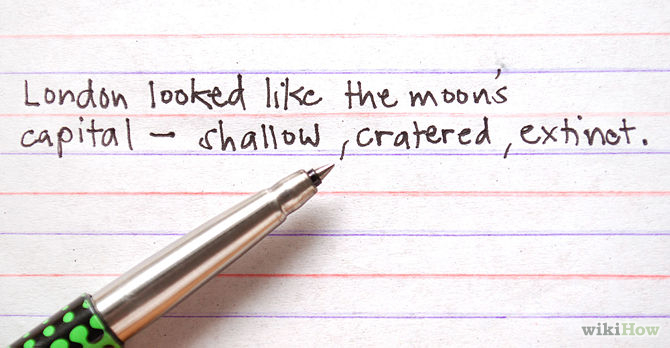 London looked like the moon's
capital – shallow, cratered, extinct.
wikiHow